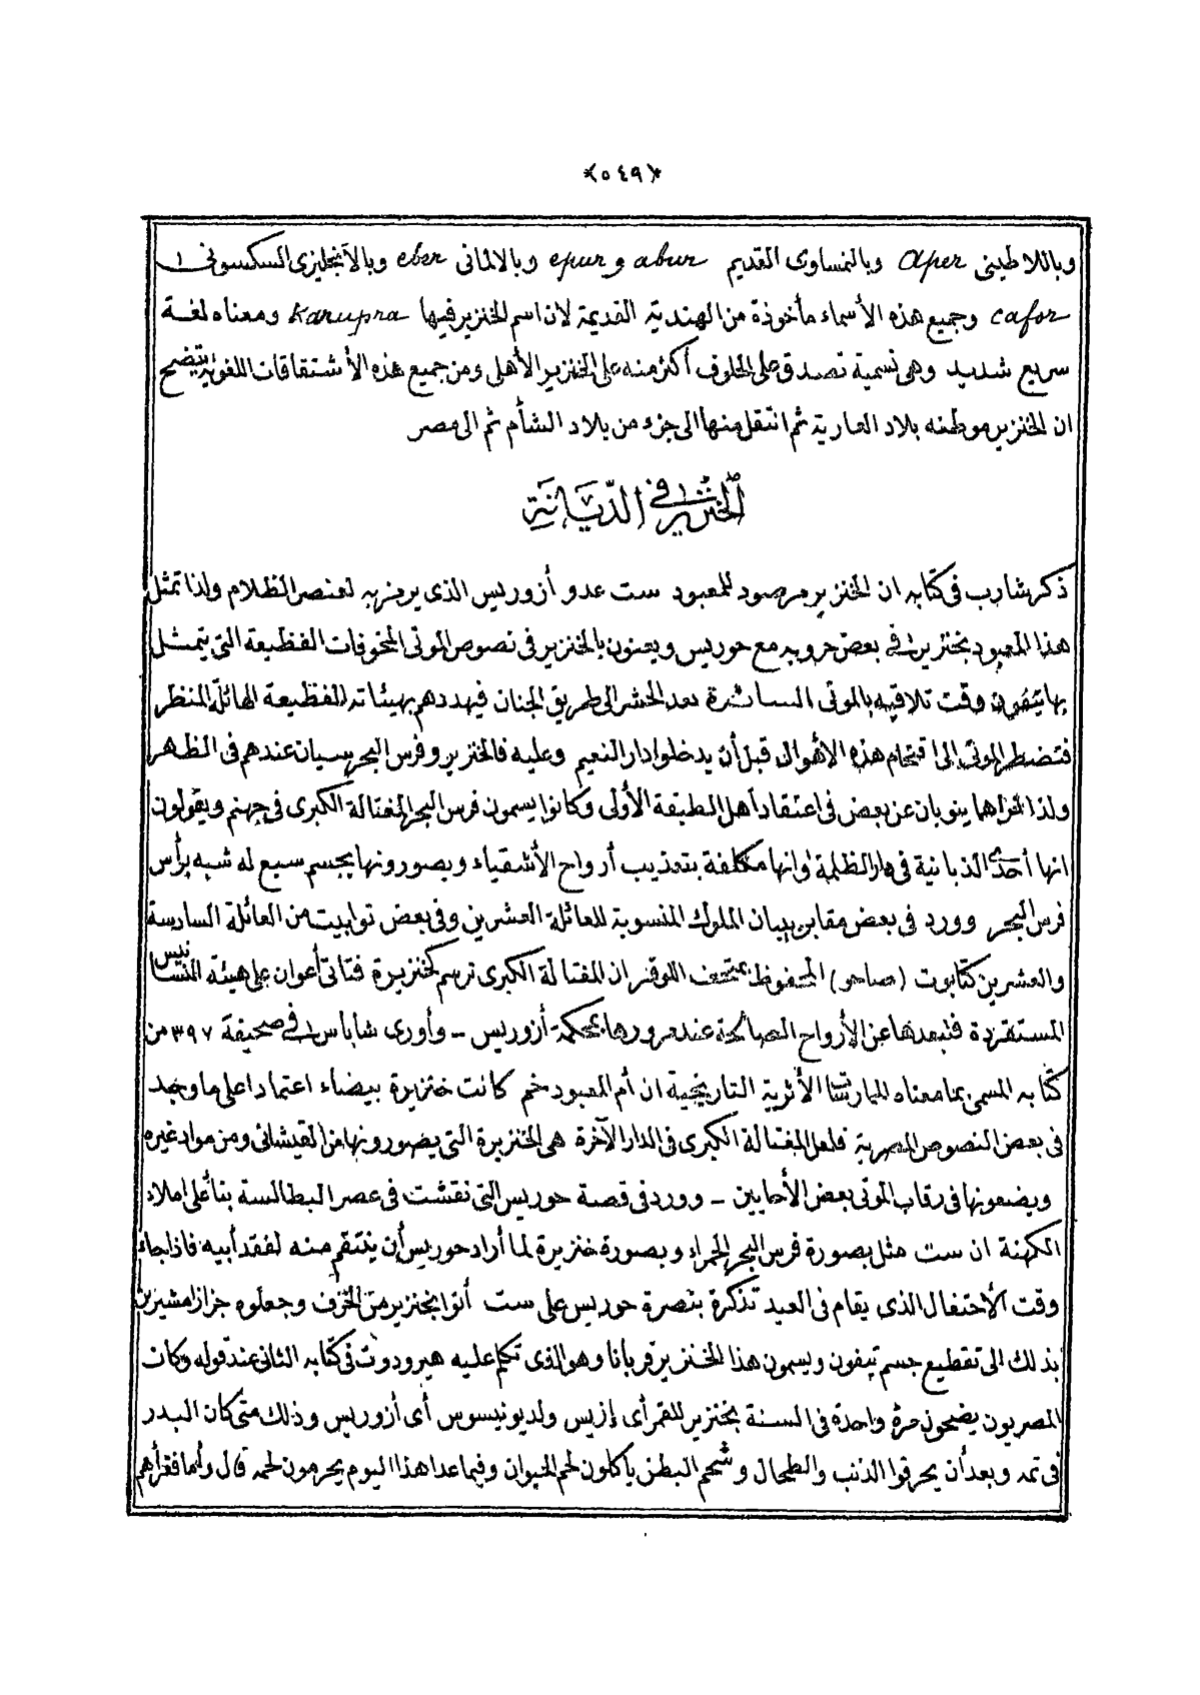 ﴿٥٤٩﴾
وباللاطينى aper وبالنمساوى القديم abur و epur وبالالمانى eber وبالأنجليزى السكسونى
cafor وجميع هذه الأسماء مأخوذة من الهندية القديمة لان اسم الخنزير فيها Karupra ومعناه لغة
سريع شديد وهى تسمية تصدق على الحلوف أكثر منه على الخنزير الأهلى ومن جميع هذه الأشتقاقات اللغوية يتضح
ان الخنزير موطنه بلاد العارية ثم انتقل منها الى جزء من بلاد الشأم ثم الى مصر
الخنزير فى الديانة
ذكر شارب فى كتابه ان الخنزير مرصود للمعبود ست عدو أزوريس الذى يرمز به لعنصر الظلام ولذا تمثل
هذا المعبود بخنزير فى بعض حروبه مع حوريس ويعنون بالخنزير فى نصوص الموتى المخوفات الفظيعة التى يتمثل
بها تيفون وقت تلاقيه بالموتى السائرة بعد الحشر الى طريق الجنان فيهددهم بهيئاته الفظيعة الهائلة المنظر
فتضطر الموتى الى اقتحام هذه الأهوال قبل أن يدخلوا دار النعيم وعليه فالخنزير وفرس البحر سيان عندهم فى الظهر
ولذا تراهما ينوبان عن بعض فى اعتقاد أهل الطبقة الأولى وكانوا يسمون فرس البحر المغتالة الكبرى فى جهنم ويقولون
انها أحدى الذبانية فى دار الظلمة وانها مكلفة بتعذيب أرواح الأشقياء ويصورونها بجسم سبع له شبه برأس
فرس البحر وورد فى بعض مقابر بيبان الملوك المنسوبة للعائلة العشرين وفى بعض توابيت من العائلة السادسة
والعشرين كتابوت (صاحو) المحفوظ بمتحف اللوفر ان المغتالة الكبرى ترسم كخنزيرة فتأتى أعوان على هيئة النسانيس
المستقردة فتبعدها عن الأرواح الصالحة عند مرورها بمحكمة أزوريس – وأورى شاباس فى صحيفة ٣٩٧ من
كتابه المسمى بما معناه الأثرية التاريخية ان أم المعبود خم كانت خنزيرة بيضاء اعتمادا على ما وجد
فى بعض النصوص المصرية فلعل المغتالة الكبرى فى الدار الآخرة هى الخنزيرة التى يصورونها من القيشانى ومن مواد غيره
ويضعونها فى رقاب الموتى بعض الأحايين – وورد فى قصة حوريس التى نقشت فى عصر البطالسة بناً على املاء
الكهنة ان ست مثل بصورة فرس البحر الحمراء وبصورة خنزيرة لما أراد حوريس أن ينتقم منه لفقد أبيه فاذا جاء
وقت الأحتفال الذى يقام فى العيد تذكرة بنصرة حوريس على ست أتوا بخنزير من الخزف وجعلوه جزازا مشيرين
بذلك الى تقطيع جسم تيفون ويسمون هذا الخنزير قربانا وهو الذى تكلم عليه هيرودوت فى كتابه الثانى عند قوله وكان
المصريون يضحون مرة واحدة فى السنة بخنزير للقمر أى إزيس ولديونيسوس أى أزوريس وذلك متى كان البدر
فى تمه وبعد أن يحرقوا الذنب والطحال وشحم البطن يأكلون لحم الحيوان وفيما عدا هذا اليوم يحرمون لحمه قال وأما فقرأهم